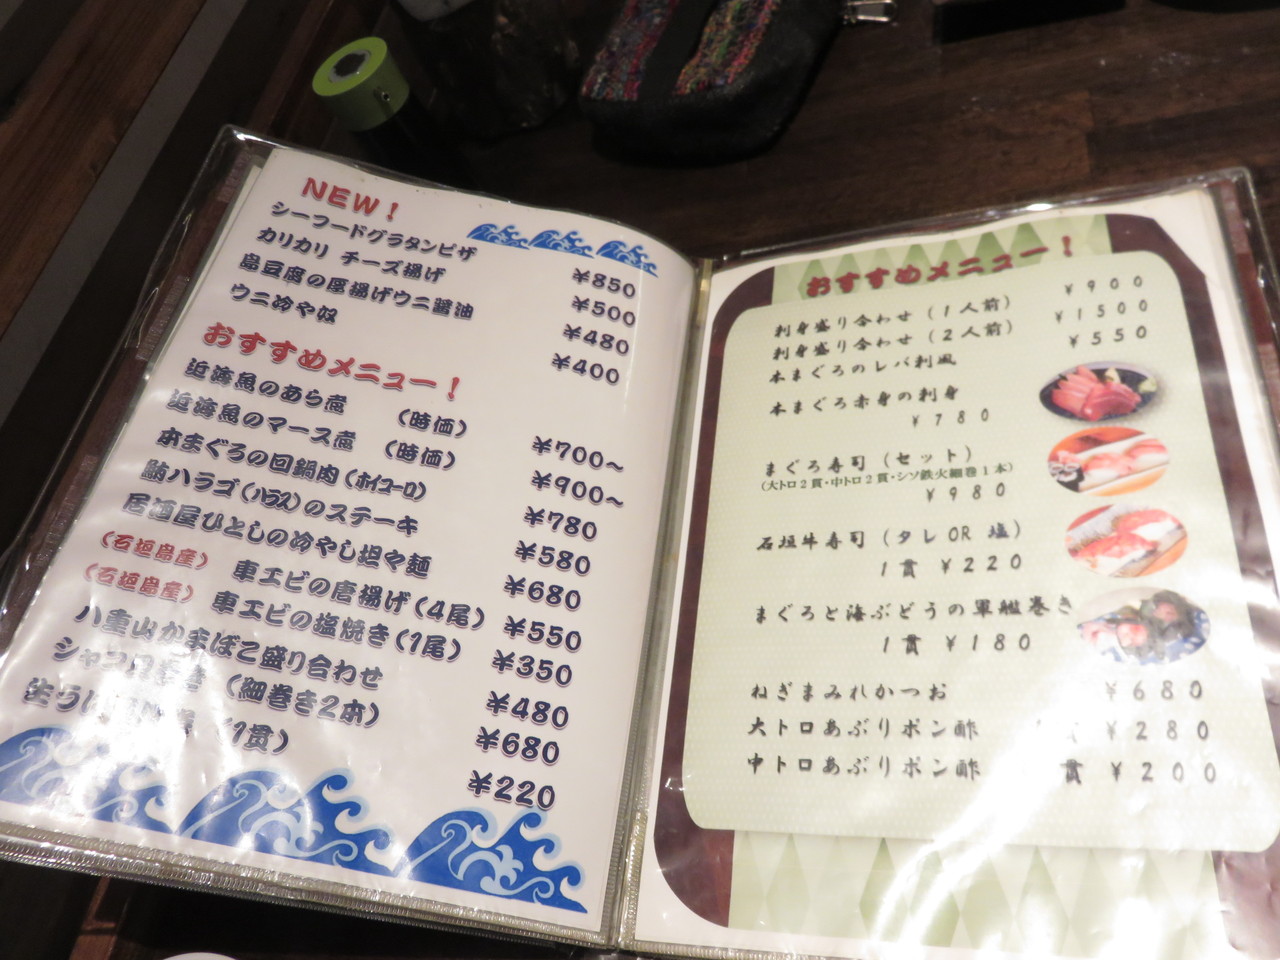 NEW!
シーフードグラタンピザ ¥850
カリカリ チーズ揚げ ¥500
島豆腐の厚揚げウニ醤油 ¥480
ウニ冷や奴 ¥400
おすすめメニュー!
近海魚のあら煮 (時価) ¥700~
近海魚のマース煮 (時価) ¥900~
本まぐろの回鍋肉(ホイコーロ) ¥780
鮪ハラゴ(ハラス)のステーキ ¥580
居酒屋ひとしの冷やし担々麺 ¥680
(石垣島産) 車エビの唐揚げ(4尾) ¥550
(石垣島産) 車エビの塩焼き(1尾) ¥350
八重山かまぼこ盛り合わせ ¥480
(細巻き2本) ¥680
(1貫) ¥220
おすすめメニュー!
刺身盛り合わせ (1人前) ¥900
刺身盛り合わせ (2人前) ¥1500
本まぐろのレバ刺風 ¥550
本まぐろ赤身の刺身
¥780
まぐろ寿司 (セット)
(大トロ2貫・中トロ2貫・シソ鉄火細巻1本)
¥980
石垣牛寿司 (タレOR 塩)
1貫 ¥220
まぐろと海ぶどうの軍艦巻き
1貫 ¥180
ねぎまみれかつお ¥680
大トロあぶりポン酢 ¥280
中トロあぶりポン酢 貫 ¥200